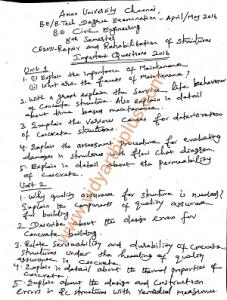 Anna University Chennai,
B.E/B.Tech Degree Examination - April/May 2016
B.E Civil Engineering
8th Semester
CE2071-Repair and Rehabilitation of Structures
Important Questions 2016
Unit 1
1. (i) Explain the Importance of Maintenance.
(ii) What are the facets of Maintenance?
2. With a graph explain the Service life behaviour
of concrete structure. Also explain in detail
about time based maintenance.
3. Explain the various causes for deterioration
of concrete structures.
4. Explain the assessment procedure for evaluating
damages in structure with flow chart diagram
5. Explain in detail about the permeability
of concrete.
Unit 2
1. Why quality assurance for structure is needed?
Explain the components of quality assurance
for building
2. Describe about the design errors for
concrete building
3. Relate serviceability and durability of concrete
structures under the heading of quality
assurance in concrete.
4. Explain in detail about the thermal properties of
concrete.
5. Explain about the design and construction
errors in RC structures with remedial measures.
www.vidyarthiplus.com